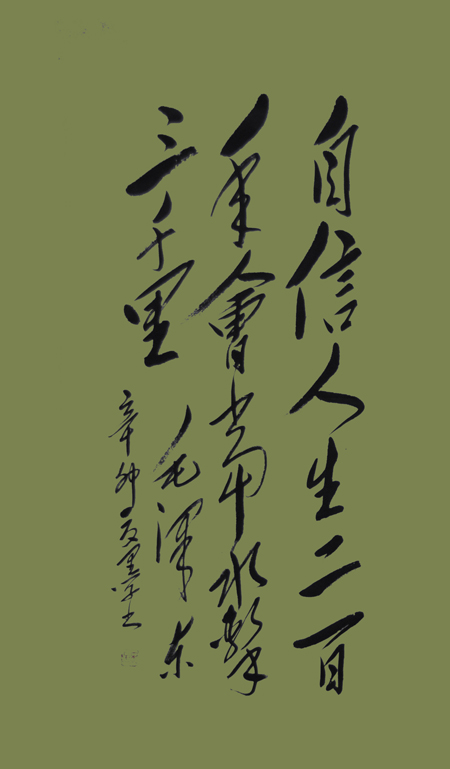 自信人生二百
年會當水擊
三千里
毛澤東
辛卯